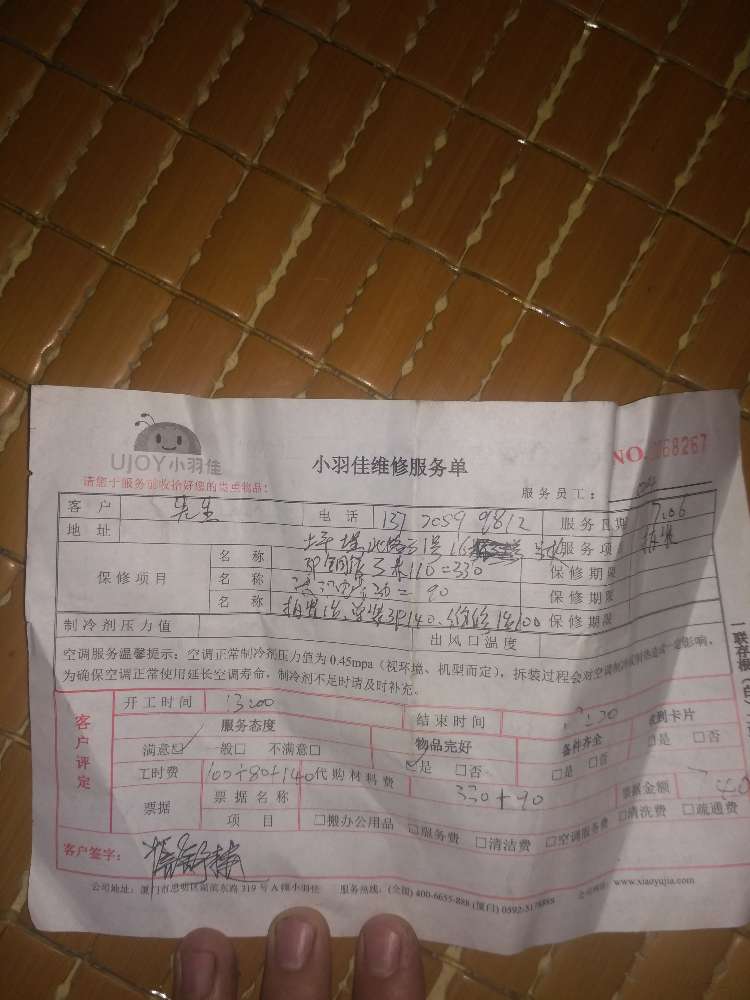 UJOY小羽佳
小羽佳维修服务单
NO. 068267
请您于服务前收拾好您的贵重物品！
服务员工：
客 户 先生 电 话 137 7059 9812 服务日期 7.06
地 址 服务项 拆装
保修项目 名 称 3米110=330 保修期限
名 称 = 90 保修期限
名 称 3P140. 100 保修期限
制冷剂压力值 出风口温度
空调服务温馨提示：空调正常制冷剂压力值为 0.45mpa（视环境、机型而定），拆装过程会对空调制冷或制热造成一定影响，
为确保空调正常使用延长空调寿命，制冷剂不足时请及时补充。
客户评定 开工时间 13:00 结束时间
服务态度 物品完好 备件齐全 收到卡片
满意☑ 一般□ 不满意□ ☑是 □否 □是 □否 □是 □否
工时费 100+80+140 代购材料费 330+90
票据 票据名称 票据金额
项 目 □搬办公用品 □服务费 □清洁费 □空调服务费 □清洗费 □疏通费
客户签字：
公司地址：厦门市思明区湖滨东路 319 号 A 幢小羽佳 服务热线：(全国) 400-6655-888 (厦门) 0592-5178888 公司网址：www.xiaoyujia.com
一联存根